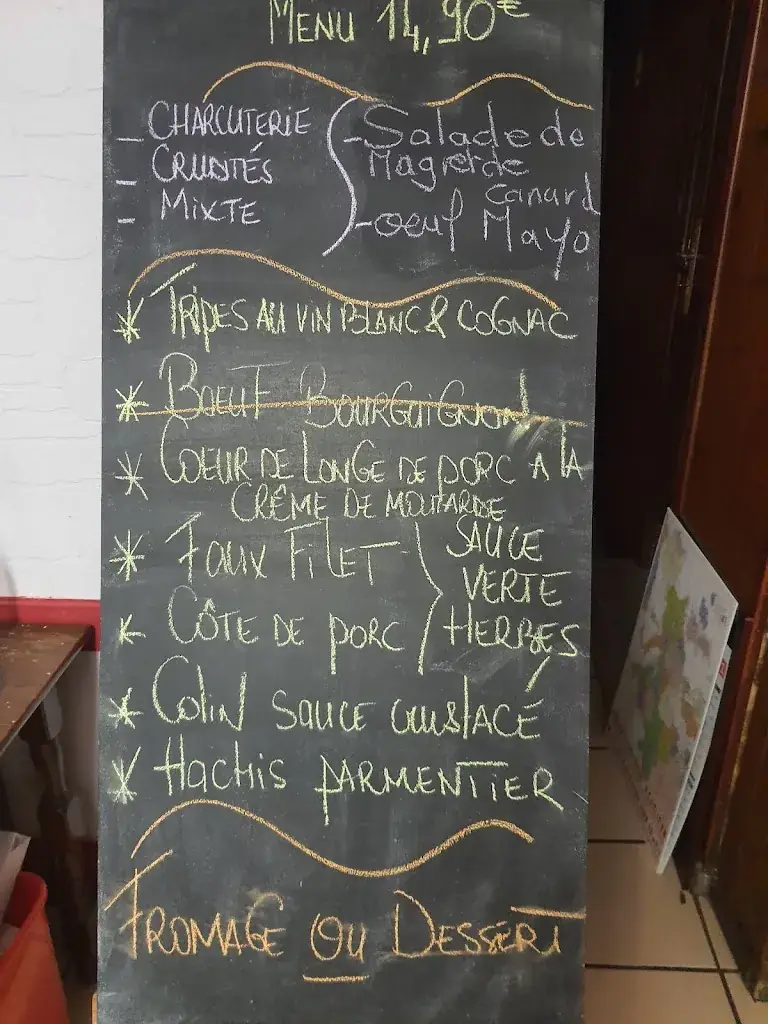 MENU 14,90€
- CHARCUTERIE
- CRUDITÉS
- MIXTE
- Salade de
Magret de
canard
- oeuf Mayo
* TRIPES AU VIN BLANC & COGNAC
* BOEUF BOURGUIGNON
* COEUR DE LONGE DE PORC A LA
CRÊME DE MOUTARDE
* FAUX FILET
* CÔTE DE PORC
SAUCE
VERTE
HERBES
* Colin SAUCE CRUSTACÉ
* Hachis PARMENTIER
FROMAGE OU DESSERT